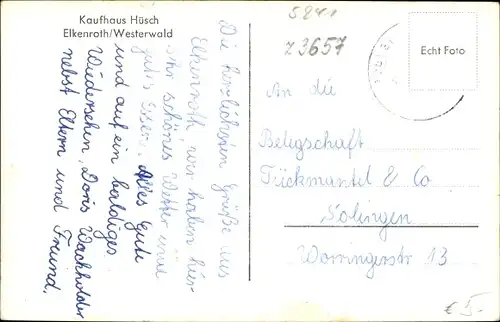 Kaufhaus Hüsch
Elkenroth/Westerwald
Die herzlichsten Grüße aus
Elkenroth, wir haben hier
sehr schönes Wetter und
gutes Essen. Alles Gute
und auf ein baldiges
Wiedersehen, Doris Wachholder
nebst Eltern und Freund.
5841
z 3657
Echt Foto
An die
Belegschaft
Tückmantel & Co
Solingen
Worringerstr 13
€ 5.-